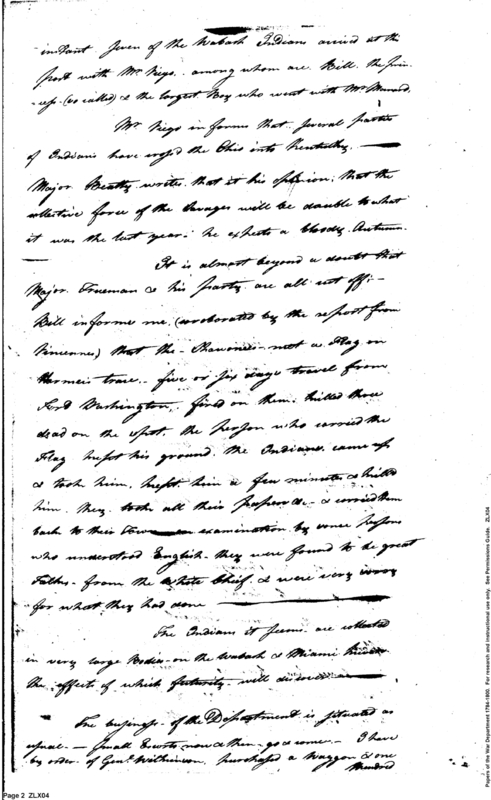 instant Seven of the Wabash Indians arrived at the
post with Mr. Vigo. among whom are Bill. the prin-
cess. (so called) & the largest Boy who went with Mr. Menard.
Mr. Vigo informs that Several parties
of Indians have cross'd the Ohio into Kentucky.
Major Beatty writes, that it his opinion, that the
collective force of the Savages will be double to what
it was the last year. he expects a bloody Autumn.
It is almost beyond a doubt that
Major Trueman & his party are all cut off:—
Bill informs me, (corroborated by the report from
Vincennes) that the Shawonies met a Flag on
Harmers trace, five or six days travel from
Ford Washington, fired on them, killed three
dead on the spot, the person who carried the
Flag kept his ground, the Indians came up
& took him, kept him a few minutes & killed
him. they took all their papers &c. & carried them
back to their Town on examination by some persons
who understood English they were found to be great
Talks from the White Chief. & were very sorry
for what they had done
The Indians it seems are collected
in very large Bodies on the Wabash & Miami
the effects of which futurity will
The business of the Department is situated as
usual. — Small Escorts now & then go & come. — I have
by order of Genl. Wilkinson, purchased a Waggon & one
Hundred
Page 2 ZLX04
Papers of the War Department 1784-1800. For research and instructional use only. See Permissions Guide. ZLX04